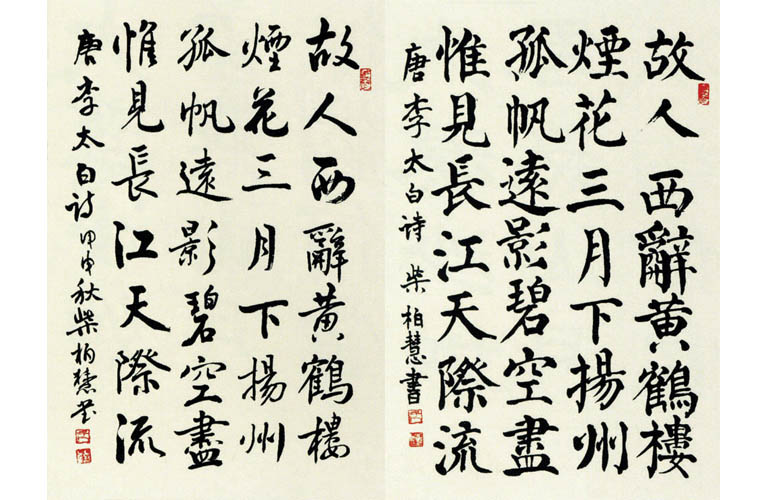 故人西辭黄鶴樓
煙花三月下揚州
孤帆遠影碧空盡
惟見長江天際流
唐李太白诗 柴柏慧書
故人西辭黄鶴樓
煙花三月下揚州
孤帆遠影碧空盡
惟見長江天際流
唐李太白诗甲申秋柴柏慧书